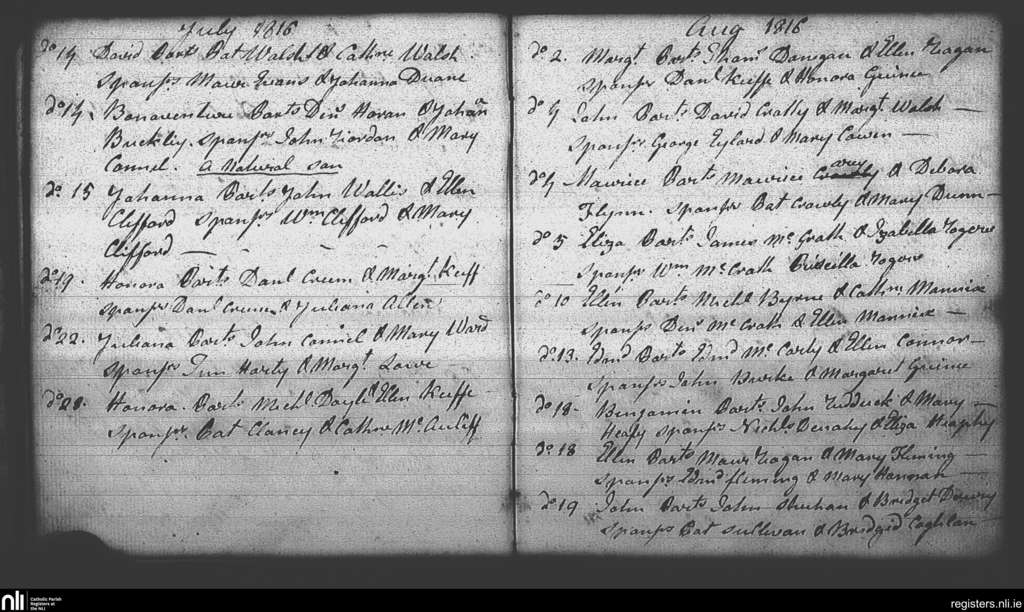 July 1816
do 14 David Parts Pat Walsh & Cathne Walsh
Sponsrs Maur Evans & Johanna Duane
do 14 Bonaventure Parts Dens Horan & Johan
Buckley. Sponsrs John Riordan & Mary
Connel. A Natural son
do 15 Johanna Parts John Wallis & Ellen
Clifford Sponsrs Wm Clifford & Mary
Clifford —
do 19. Honora Parts Danl Creem & Margt Keeff
Sponsrs Danl Creem & Juliana Allen
do 22. Juliana Parts John Connel & Mary Ward
Sponsrs Tim Harty & Margt Lowe
do 28. Honora. Parts Michl Doyle & Ellen Keeffe
Sponsrs. Pat Clancy & Cathne McAuliff
Aug 1816
do 2. Margt Parts Donegan & Ellen Reagan
Sponsrs Danl Keeffe & Honora Guinee
do 4 John Parts David Cratty & Margt Walsh —
Sponsrs George Eylard & Mary Cowen —
do 4 Maurice Parts Maurice & Debora
Flynn. Sponsrs Pat Crowly & Mary Dunn —
do 5 Eliza Parts James McCrath & Izabella Rogers
Sponsrs Wm McCrath Priscilla Rogers
do 10 Ellen Parts Michl Byrne & Cathne Mannix
Sponsrs Dens McCrath & Ellen Mannix —
do 13. Edmd Parts Edmd McCarty & Ellen Connor —
Sponsrs John Burke & Margaret Guinee
do 18. Benjamin Parts John Ruddock & Mary —
Heafy Sponsrs Nichs Denahy & Eliza Heaphy
do 18 Ellen Parts Maur Reagan & Mary Fleming —
Sponsrs Edmd Fleming & Mary Hannan —
do 19 John Parts John Sheehan & Bridget Downy
Sponsrs Pat Sullivan & Bridgid Coghlan
nli Catholic Parish
Registers at
the NLI
registers.nli.ie